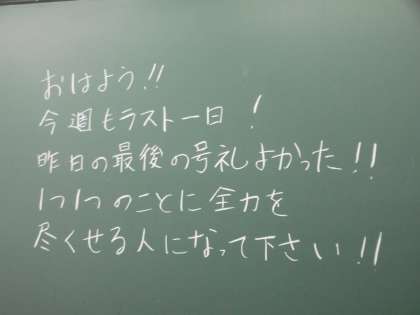 おはよう!!
今週もラスト一日!
昨日の最後の号礼よかった!!
1つ1つのことに全力を
尽くせる人になって下さい!!